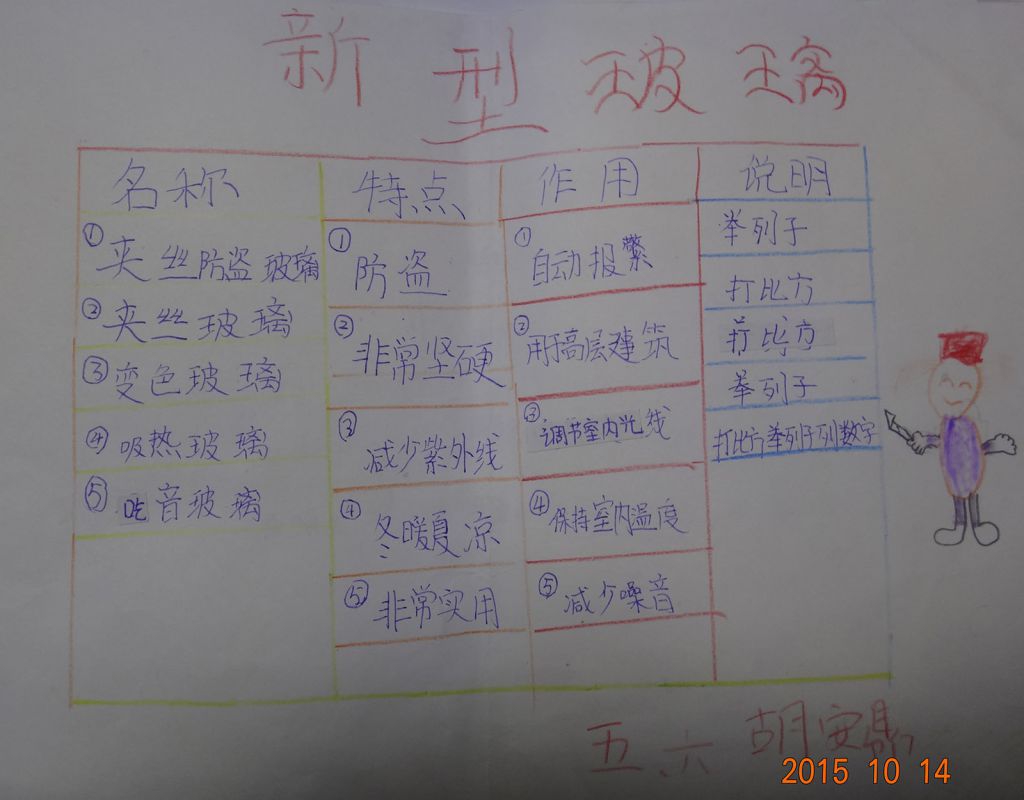 新型玻璃
名称 特点 作用 说明
①夹丝防盗玻璃 ①防盗 ①自动报警 举列子
②夹丝玻璃 ②非常坚硬 ②用于高层建筑 打比方
③变色玻璃 ③减少紫外线 ③调节室内光线 打比方
④吸热玻璃 ④冬暖夏凉 ④保持室内温度 举列子
⑤吃音玻璃 ⑤非常实用 ⑤减少噪音 打比方举列子列数字
五六 胡安鼎
2015 10 14